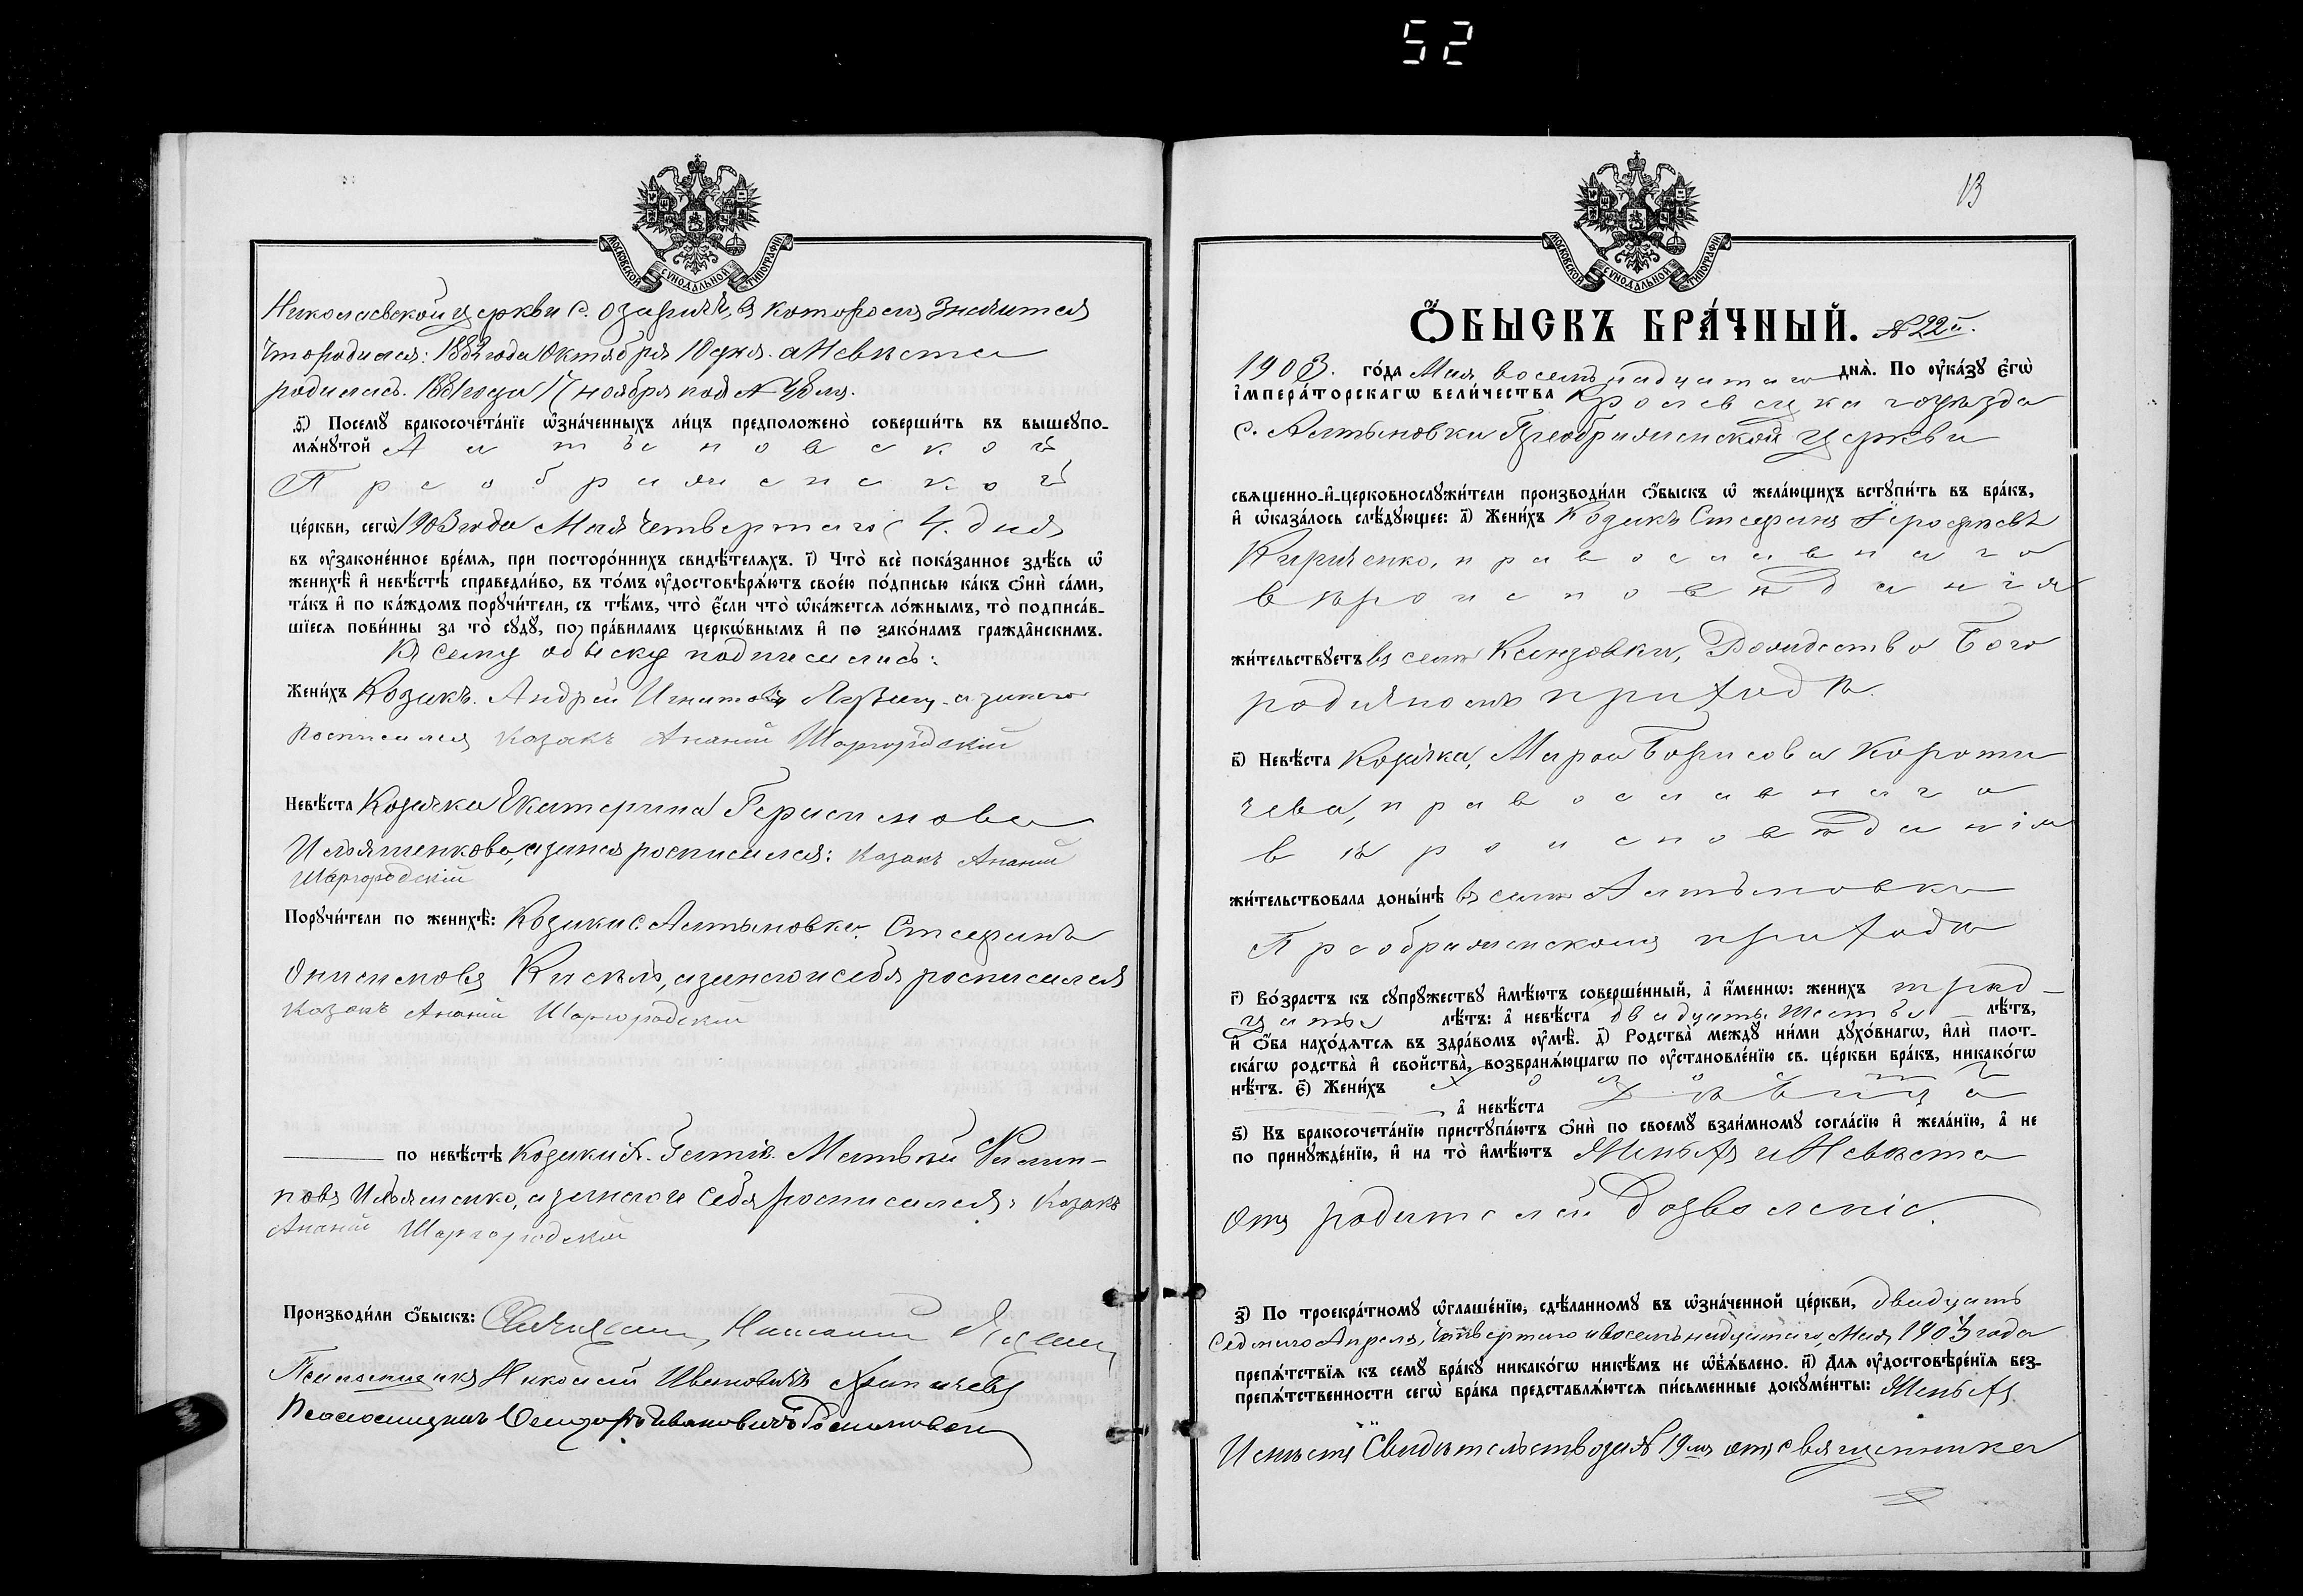 52
МОСКОВСКОЙ СѴНОДАЛЬНОЙ ТИПОГРАФІИ
Николаевской церкви с. Озаричъ, въ которомъ значится
что родился: 1882 года Октября 10 дня. а Невѣста
родилась. 1881 года 17 ноября под №
ѕ҃) Посемꙋ бракосочета́нїе ѡ҆зна́ченныхъ ли́цъ предположено̀ соверши́ть въ вышеꙋпо-
мѧ́нꙋтой Алтыновской
Преображенской
це́ркви, сегѡ̀ 1903 года Мая четвертаго 4. дня
въ ᲂу҆законе́нное вре́мѧ, при посторо́ннихъ свидѣ́телѧхъ. і҃) Что̀ всѐ пока́занное здѣ́сь ѡ҆
женихѣ̀ и҆ невѣ́стѣ справедли́во, въ то́мъ ᲂу҆достовѣрѧ́ютъ свое́ю по́дписью ка́къ ѻ҆нѝ са́ми,
та́къ и҆ по ка́ждомъ порꙋчи́тели, съ тѣ́мъ, что̀ є҆́сли что̀ ѡ҆ка́жетсѧ ло́жнымъ, то̀ подписа́в-
шїесѧ пови́нны за то̀ сꙋдꙋ̀, по пра́виламъ церко́внымъ и҆ по зако́намъ гражда́нскимъ.
К сему обыску подписались:
Жени́хъ Козакъ. Андрей Игнатовъ а за него
росписался Казакъ Ананій Шаргородскій
Невѣ́ста Козачка Екатерина Герасимова
Ильяшенкова, а за нея росписался: Казакъ Ананій
Шаргородскій
Порꙋчи́тели по женихѣ̀: Козаки с. Алтыновки. Стефанъ
Онисимовъ Кисель, а за него и себя росписался
казакъ Ананій Шаргородскій
по невѣ́стѣ Козаки Матвей Филип-
повъ Ильяшенко, а за него и себя росписался: Казакъ
Ананій Шаргородскій
Производи́ли ѻ҆́быскъ: Священник,
Псаломщикъ Николай Ивановичъ
Псаломщикъ Ивановичъ
13
МОСКОВСКОЙ СѴНОДАЛЬНОЙ ТИПОГРАФІИ
Ѻ҆́БЫСКЪ БРА́ЧНЫЙ. № 22й.
1903. го́да Мая восемьнадцатаго днѧ̀. По ᲂу҆ка́зꙋ є҆гѡ̀
і҆мпера́торскагѡ вели́чества Кролевецкаго уѣзда
с. Алтыновки Преображенской церкви
свѧще́нно-и҆-церковнослꙋжи́тели производи́ли ѻ҆́быскъ ѡ҆ жела́ющихъ встꙋпи́ть въ бра́къ,
и҆ ѡ҆каза́лось слѣ́дꙋющее: а҃) Жени́хъ Козакъ Стефанъ Ерофѣевъ
Кириченко, православнаго
вѣроисповѣданія
жи́тельствꙋетъ въ селѣ Рождество Бого
родичномъ приходѣ.
в҃) Невѣ́ста Козачка, Марфа Борисова Короти
чева, православнаго
вѣроисповѣданія
жи́тельствовала доны́нѣ въ селѣ Алтыновкѣ
Преображенскомъ приходѣ
г҃) Во́зрастъ къ сꙋпрꙋ́жествꙋ и҆мѣ́ютъ соверше́нный, а҆ и҆́меннѡ: жени́хъ трид-
цать лѣ́тъ: а҆ невѣ́ста двадцать шесть лѣ́тъ,
и҆ ѻ҆́ба нахо́дѧтсѧ въ здра́вомъ ᲂу҆мѣ̀. д҃) Родства̀ междꙋ̀ ни́ми дꙋхо́внагѡ, и҆лѝ пло́т-
скагѡ родства̀ и҆ сво́йства, возбранѧ́ющагѡ по ᲂу҆становле́нїю св. це́ркви бра́къ, никако́гѡ
нѣ́тъ. є҃) Жени́хъ холостъ
а҆ невѣ́ста дѣвица
ѕ҃) Къ бракосочета́нїю пристꙋпа́ютъ ѻ҆нѝ по своемꙋ̀ взаи́мномꙋ согла́сїю и҆ жела́нїю, а҆ не
по принꙋжде́нїю, и҆ на то̀ и҆мѣ́ютъ Женихъ и Невѣста
отъ родителей дозволеніе.
з҃) По троекра́тномꙋ ѡ҆глаше́нїю, сдѣ́ланномꙋ въ ѡ҆зна́ченной це́ркви, двадцать
седмаго Апреля, четвертаго и восемьнадцатаго Мая 1903 года
препѧ́тствїѧ къ семꙋ̀ бра́кꙋ никако́гѡ никѣ́мъ не ѡ҆б̾ѧ́влено. и҃) Длѧ̀ ᲂу҆достовѣре́нїѧ без-
препѧ́тственности сегѡ̀ бра́ка представлѧ́ютсѧ пи́сьменные докꙋме́нты: Женихъ
Имѣетъ Свидѣтельство за № 19мъ отъ священника